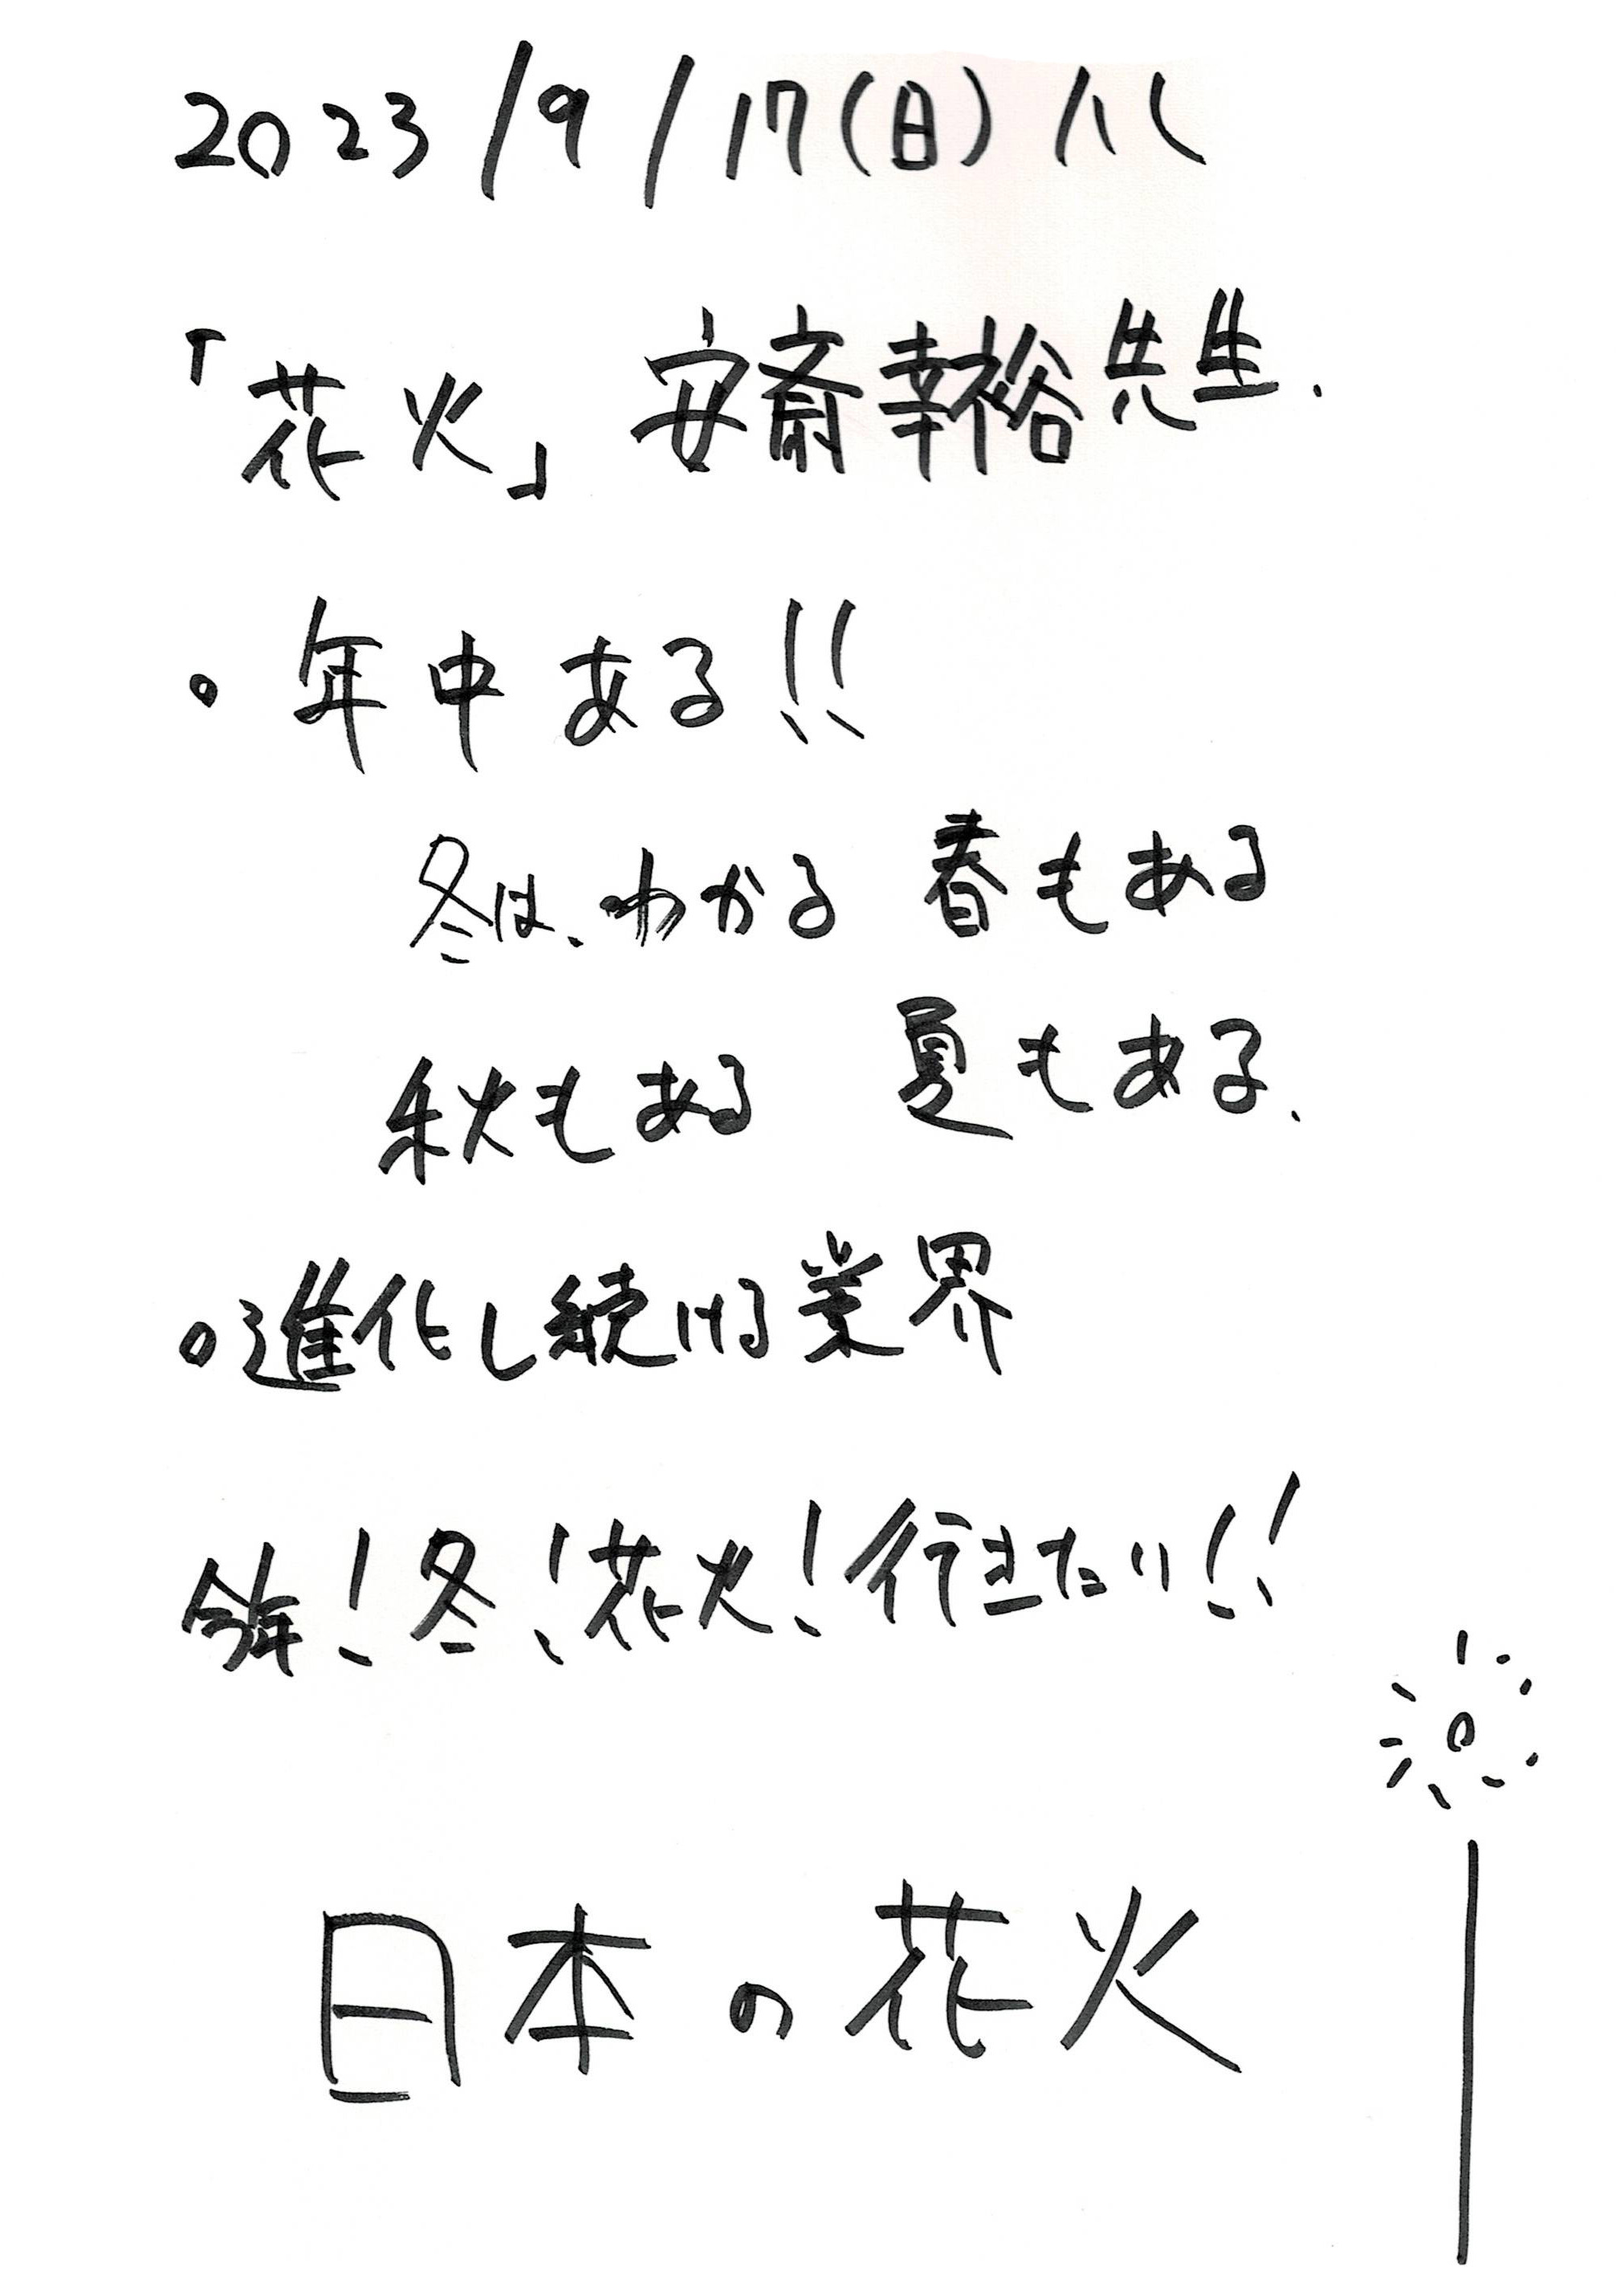 2023/9/17(日)
「花火」 安斎幸裕先生.
・年中ある!!
冬は、わかる 春もある
秋もある 夏もある.
・進化し続ける業界
今年!冬!花火!行きたい!!
日本の花火